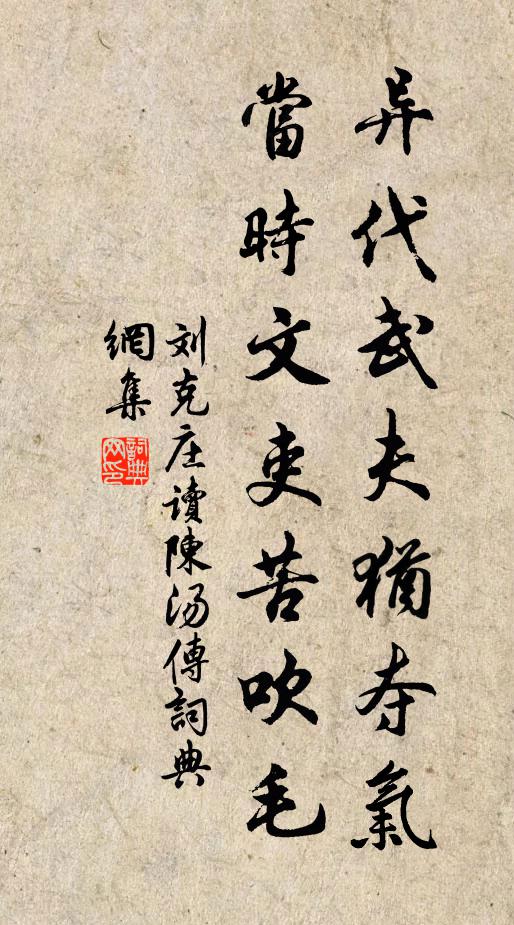 异代武夫犹夺氣
當時文吏苦吹毛
刘克庄讀陳湯傳詞典
網集
詞典网印